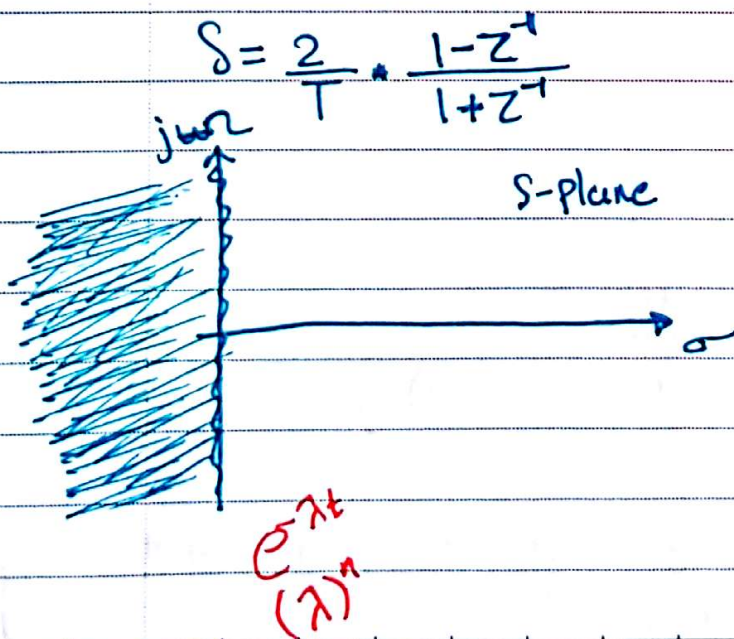 S = 2/T * (1-Z⁻¹)/(1+Z⁻¹)
jΩ
S-plane
σ
e^λt
(λ)ⁿ